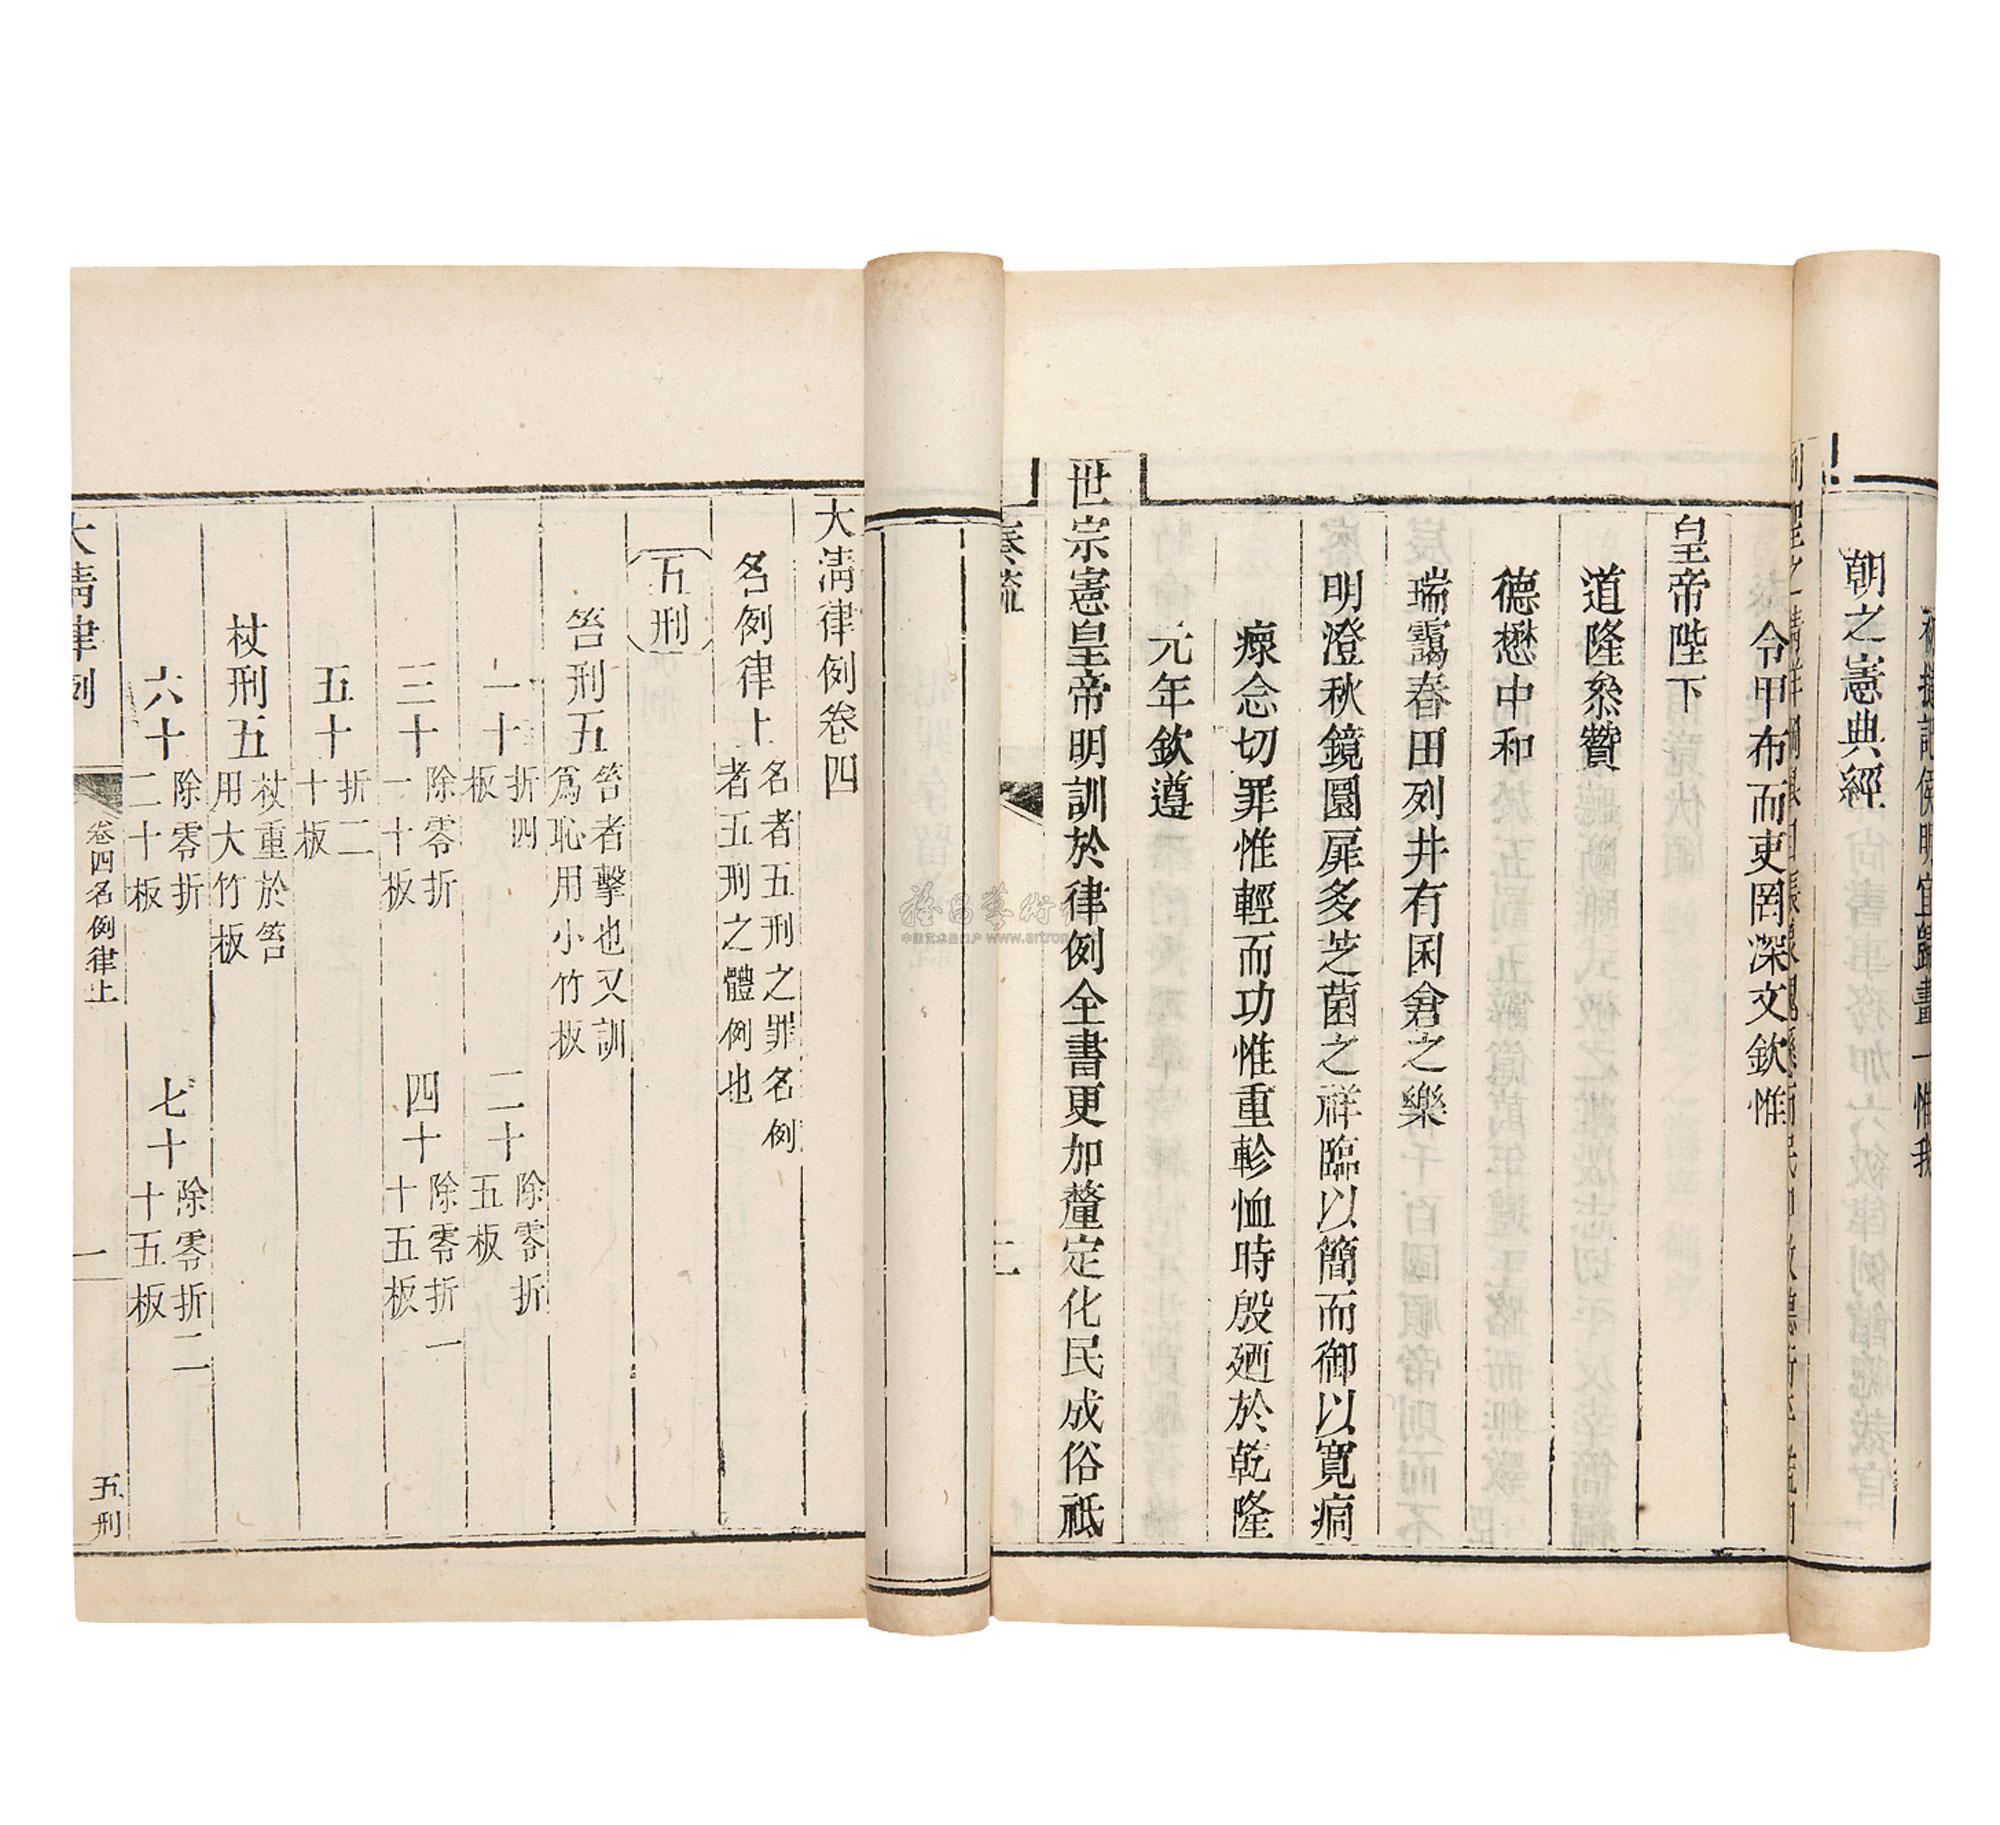 朝之憲典經
令甲布而吏罔深文欽惟
皇帝陛下
道隆叅贊
德懋中和
瑞靄春田列井有囷倉之樂
明澄秋鏡圜扉多芝菌之祥臨以簡而御以寬痌
瘝念切罪惟輕而功惟重軫恤時殷廼於乾隆
元年欽遵
世宗憲皇帝明訓於律例全書更加釐定化民成俗祗
奏疏
二
大淸律例卷四
名例律上 名者五刑之罪名例
者五刑之體例也
五刑
笞刑五 笞者擊也又訓
爲恥用小竹板
一十 折四
板
二十 除零折
五板
三十 除零折
一十板
四十 除零折一
十五板
五十 折二
十板
杖刑五 杖重於笞
用大竹板
六十 除零折
二十板
七十 除零折二
十五板
大淸律例
卷四名例律上
一
五刑
www.artron